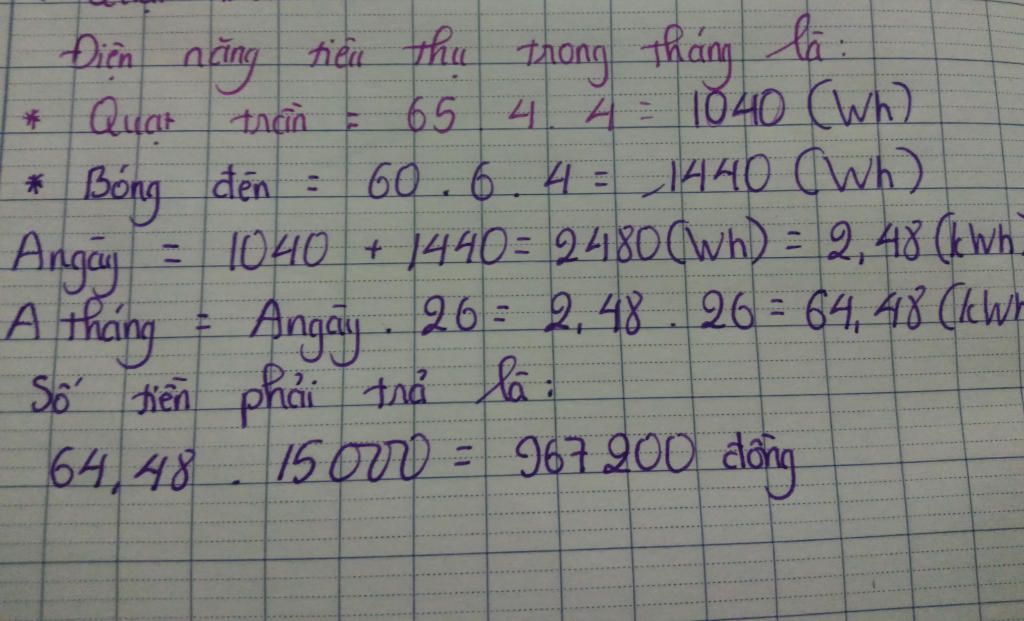 Điện năng tiêu thụ trong tháng là:
* Quạt trần = 65 4. 4 = 1040 (Wh)
* Bóng đèn = 60 . 6 . 4 = 1440 (Wh)
A ngày = 1040 + 1440 = 2480 (Wh) = 2,48 (kWh)
A tháng = A ngày . 26 = 2,48 . 26 = 64,48 (kWh
Số tiền phải trả là:
64,48 . 15000 = 967200 đồng